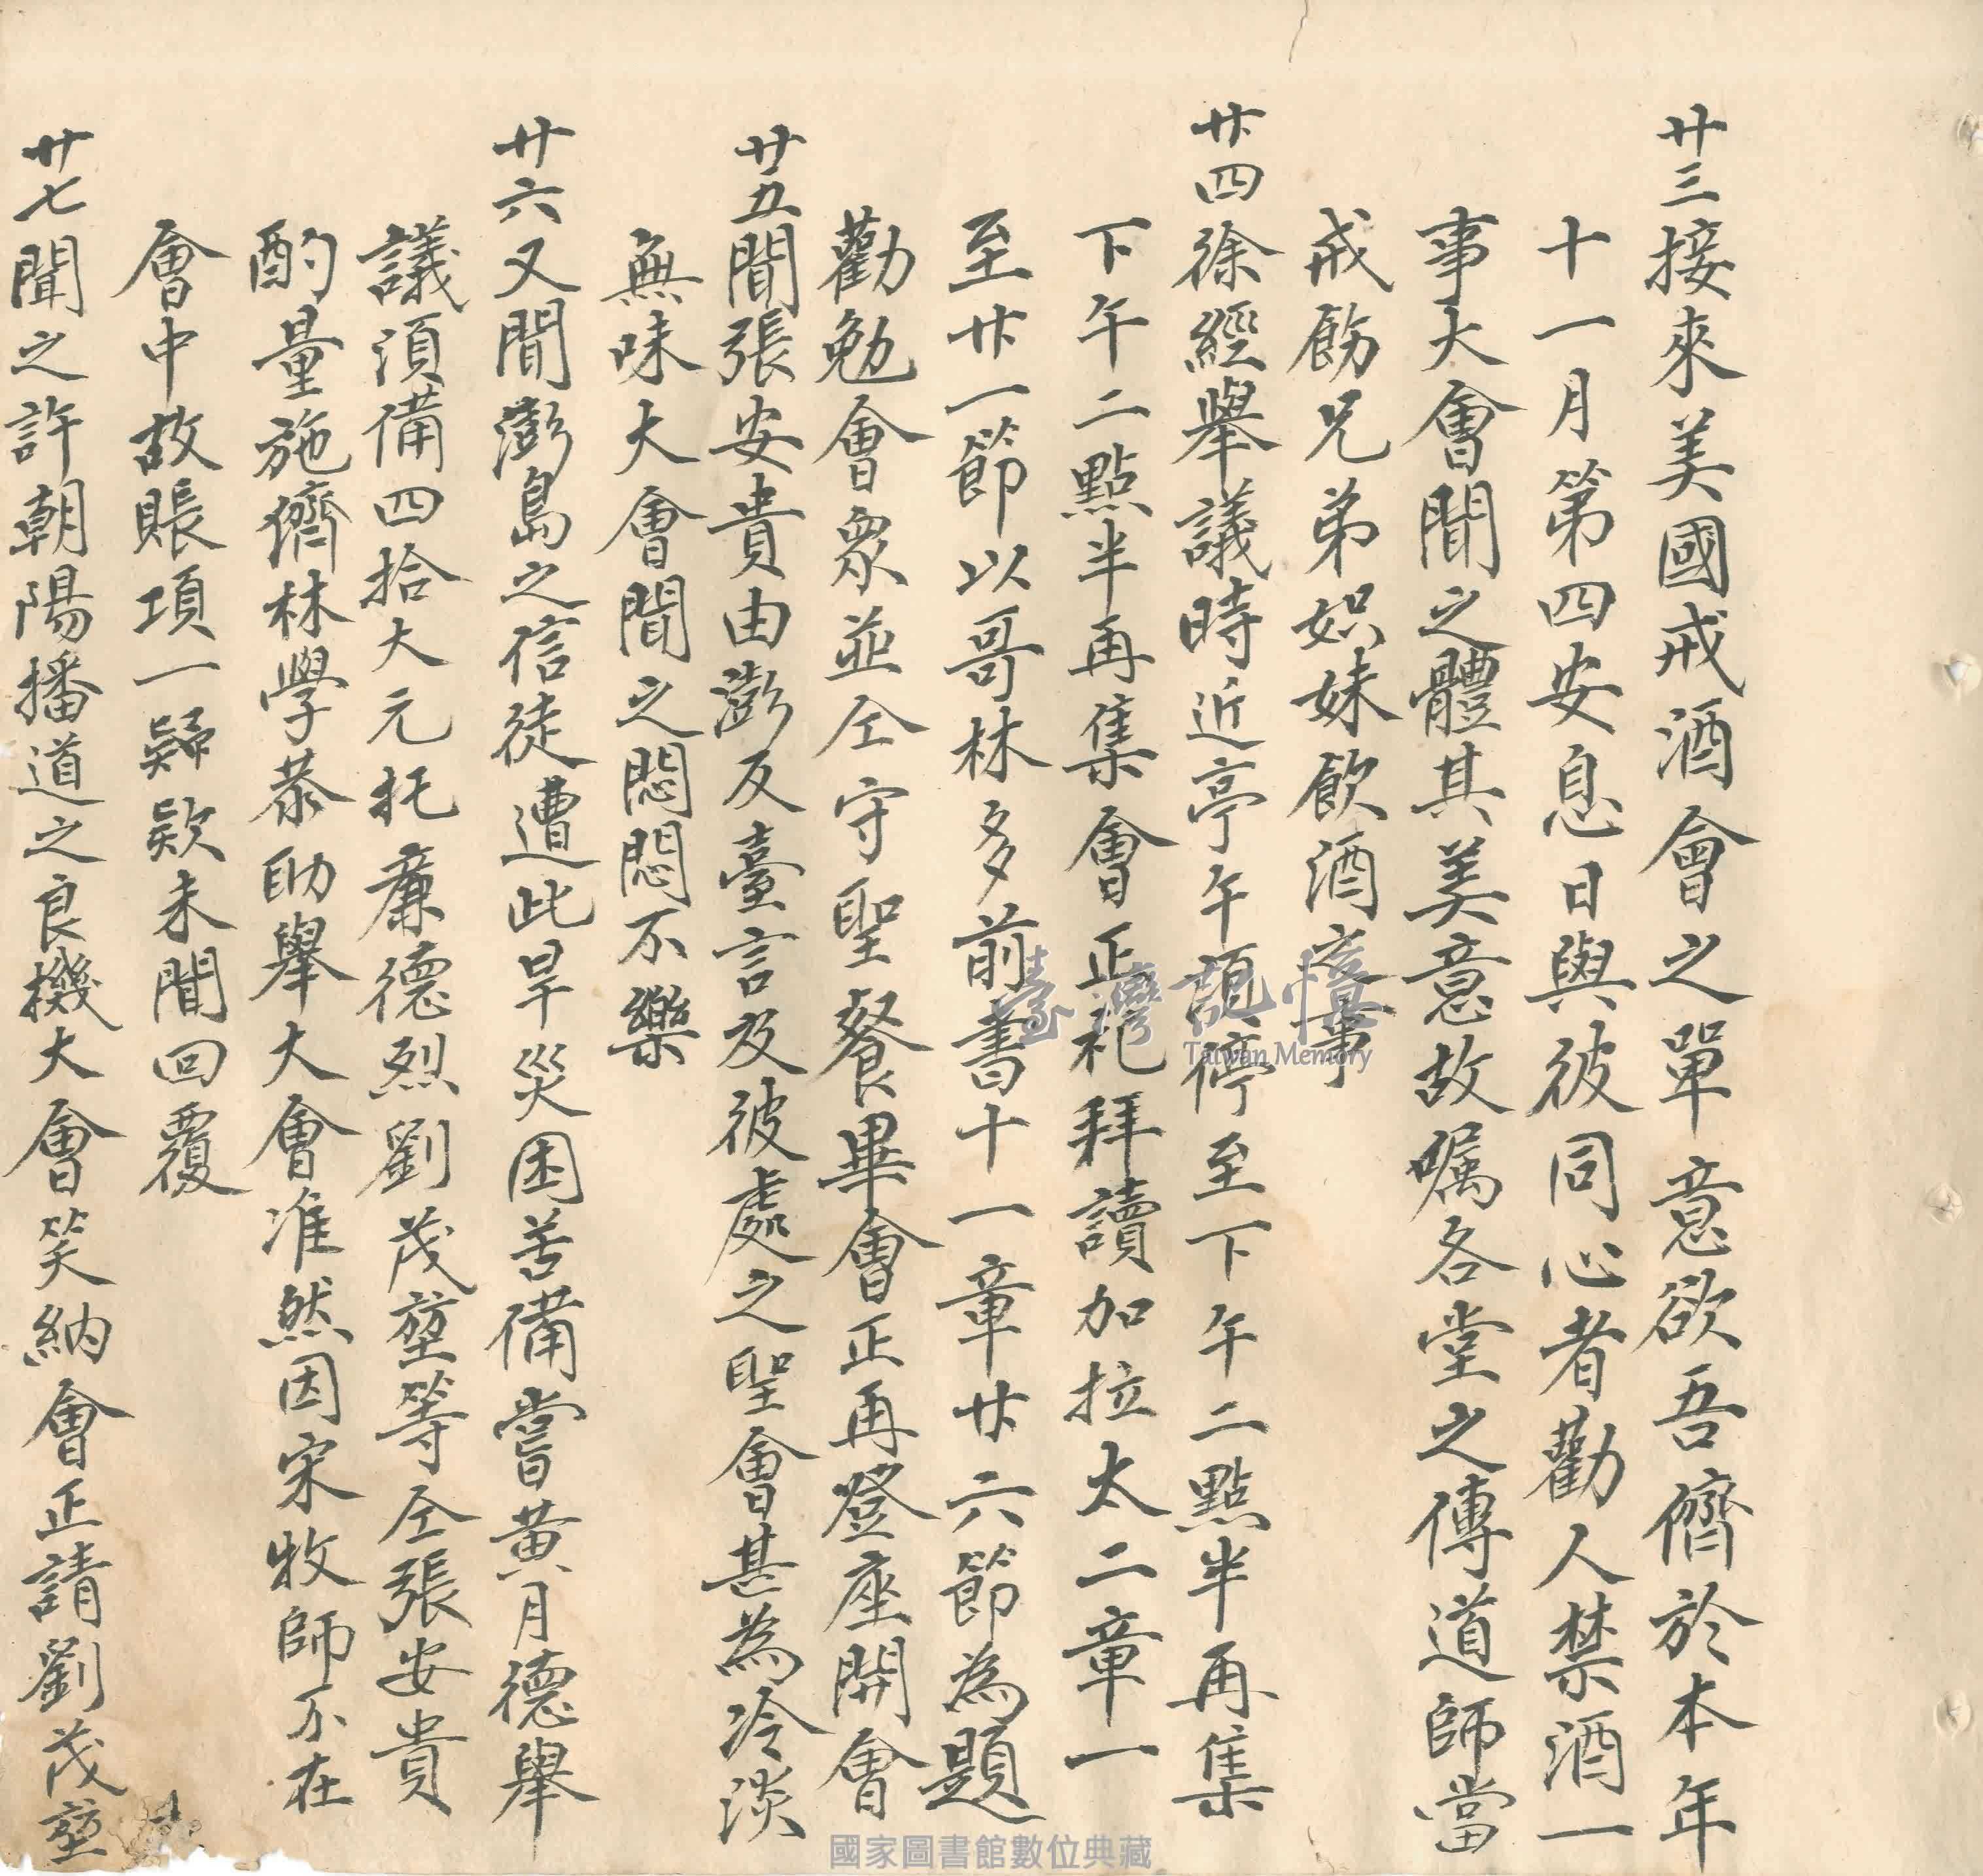 廿三接來美國戒酒會之單意欲吾儕於本年
十一月第四安息日與彼同心者勸人禁酒一
事大會聞之體其美意故嘱各堂之傳道師當
戒飭兄弟姊妹飲酒之事
廿四徐經舉議時近亭午頭停至下午二點半再集
下午二點半再集會正礼拜讀加拉太二章一
至廿一節以哥林多前書十一章廿六節為題
勸勉會眾並仝守聖餐畢會正再登座開會
廿五聞張安貴由澎反臺言及彼處之聖會甚為冷淡
無味大會聞之悶悶不樂
廿六又聞澎島之信徒遭此旱災困苦備嘗黃月德舉
議須備四拾大元托廉德烈劉茂堃等仝張安貴
酌量施儕林學恭助舉大會准然因宋牧師不在
會中故賬項一歸欵未聞回覆
廿七聞之許朝陽播道之良機大會笑納會正請劉茂堃
臺灣記憶
Taiwan Memory
國家圖書館數位典藏